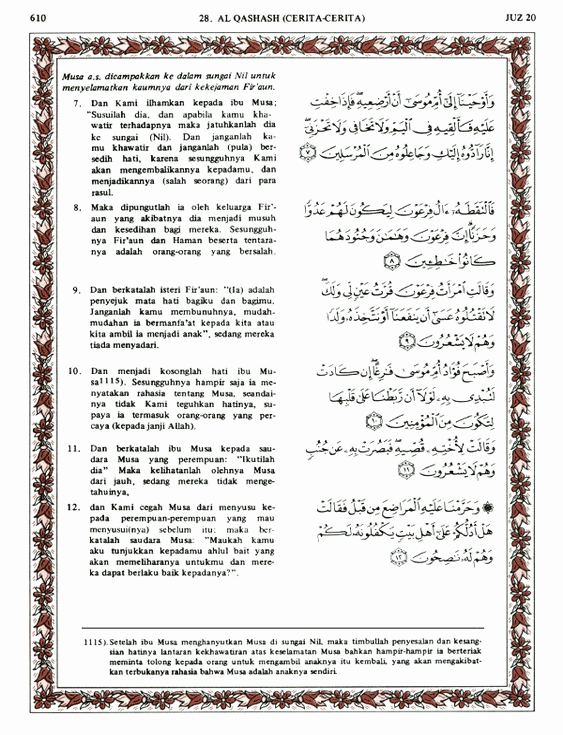 610
28. AL QASHASH (CERITA-CERITA)
JUZ 20
Musa a.s. dicampakkan ke dalam sungai Nil untuk
menyelamatkan kaumnya dari kekejaman Fir'aun.
7. Dan Kami ilhamkan kepada ibu Musa;
"Susuilah dia, dan apabila kamu kha-
watir terhadapnya maka jatuhkanlah dia
ke sungai (Nil). Dan janganlah ka-
mu khawatir dan janganlah (pula) ber-
sedih hati, karena sesungguhnya Kami
akan mengembalikannya kepadamu, dan
menjadikannya (salah seorang) dari para
rasul.
وَأَوْحَيْنَآ إِلَىٰٓ أُمِّ مُوسَىٰٓ أَنْ أَرْضِعِيهِ فَإِذَا خِفْتِ
عَلَيْهِ فَأَلْقِيهِ فِى ٱلْيَمِّ وَلَا تَخَافِى وَلَا تَحْزَنِىٓ
إِنَّا رَآدُّوهُ إِلَيْكِ وَجَاعِلُوهُ مِنَ ٱلْمُرْسَلِينَ ٧
8. Maka dipungutlah ia oleh keluarga Fir'-
aun yang akibatnya dia menjadi musuh
dan kesedihan bagi mereka. Sesungguh-
nya Fir'aun dan Haman beserta tentara-
nya adalah orang-orang yang bersalah.
فَٱلْتَقَطَهُۥٓ ءَالُ فِرْعَوْنَ لِيَكُونَ لَهُمْ عَدُوًّا
وَحَزَنًا إِنَّ فِرْعَوْنَ وَهَٰمَٰنَ وَجُنُودَهُمَا
كَانُوا۟ خَٰطِـِٔينَ ٨
9. Dan berkatalah isteri Fir'aun: "(Ia) adalah
penyejuk mata hati bagiku dan bagimu.
Janganlah kamu membunuhnya, mudah-
mudahan ia bermanfa'at kepada kita atau
kita ambil ia menjadi anak", sedang mereka
tiada menyadari.
وَقَالَتِ ٱمْرَأَتُ فِرْعَوْنَ قُرَّتُ عَيْنٍ لِّى وَلَكَ
لَا تَقْتُلُوهُ عَسَىٰٓ أَن يَنفَعَنَآ أَوْ نَتَّخِذَهُۥ وَلَدًا
وَهُمْ لَا يَشْعُرُونَ ٩
10. Dan menjadi kosonglah hati ibu Mu-
sa1115). Sesungguhnya hampir saja ia me-
nyatakan rahasia tentang Musa, seandai-
nya tidak Kami teguhkan hatinya, su-
paya ia termasuk orang-orang yang per-
caya (kepada janji Allah).
وَأَصْبَحَ فُؤَادُ أُمِّ مُوسَىٰ فَٰرِغًا إِن كَادَتْ
لَتُبْدِى بِهِۦ لَوْلَآ أَن رَّبَطْنَا عَلَىٰ قَلْبِهَا
لِتَكُونَ مِنَ ٱلْمُؤْمِنِينَ ١٠
11. Dan berkatalah ibu Musa kepada sau-
dara Musa yang perempuan: "Ikutilah
dia" Maka kelihatanlah olehnya Musa
dari jauh, sedang mereka tidak menge-
tahuinya,
وَقَالَتْ لِأُخْتِهِۦ قُصِّيهِ فَبَصُرَتْ بِهِۦ عَن جُنُبٍ
وَهُمْ لَا يَشْعُرُونَ ١١
12. dan Kami cegah Musa dari menyusu ke-
pada perempuan-perempuan yang mau
menyusui(nya) sebelum itu; maka ber-
katalah saudara Musa: "Maukah kamu
aku tunjukkan kepadamu ahlul bait yang
akan memeliharanya untukmu dan mere-
ka dapat berlaku baik kepadanya?".
۞ وَحَرَّمْنَا عَلَيْهِ ٱلْمَرَاضِعَ مِن قَبْلُ فَقَالَتْ
هَلْ أَدُلُّكُمْ عَلَىٰٓ أَهْلِ بَيْتٍ يَكْفُلُونَهُۥ لَكُمْ
وَهُمْ لَهُۥ نَٰصِحُونَ ١٢
1115). Setelah ibu Musa menghanyutkan Musa di sungai Nil, maka timbullah penyesalan dan kesang-
sian hatinya lantaran kekhawatiran atas keselamatan Musa bahkan hampir-hampir ia berteriak
meminta tolong kepada orang untuk mengambil anaknya itu kembali, yang akan mengakibat-
kan terbukanya rahasia bahwa Musa adalah anaknya sendiri.